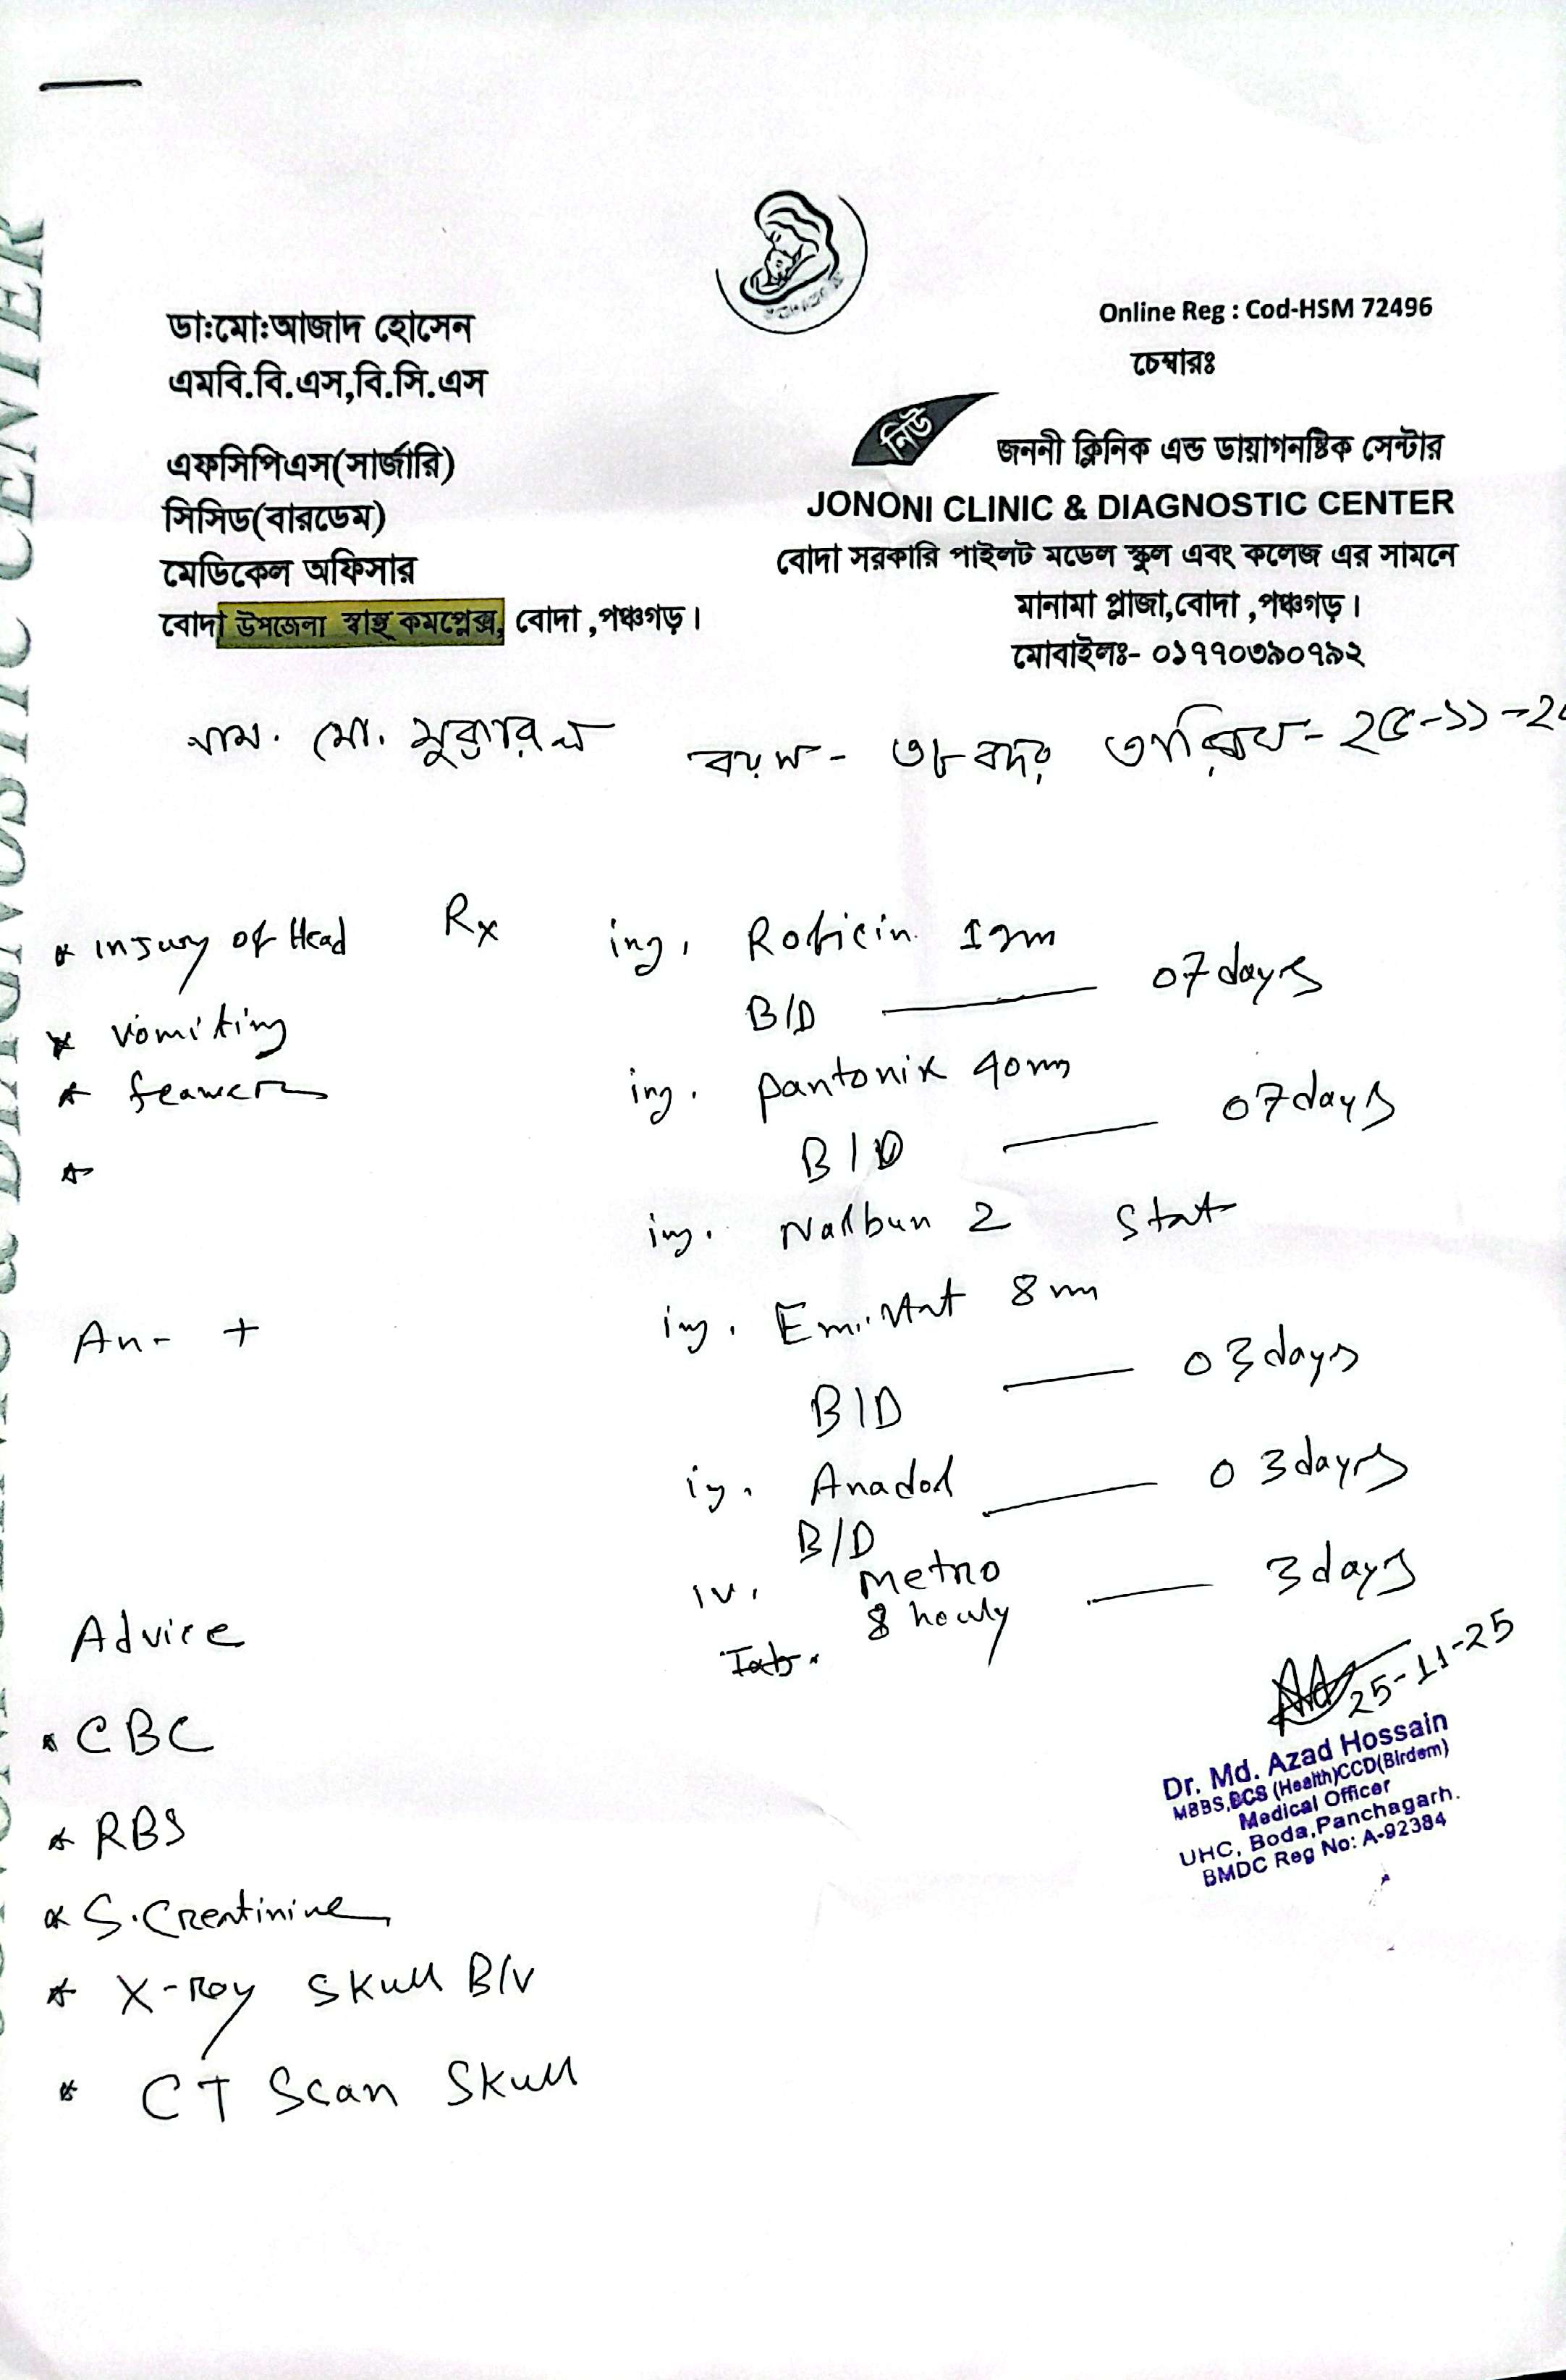 ডাঃমোঃআজাদ হোসেন
এমবি.বি.এস,বি.সি.এস
এফসিপিএস(সার্জারি)
সিসিড(বারডেম)
মেডিকেল অফিসার
বোদা উপজেলা স্বাস্থ্য কমপ্লেক্স, বোদা ,পঞ্চগড়।
Online Reg : Cod-HSM 72496
চেম্বারঃ
নিউ
জননী ক্লিনিক এন্ড ডায়াগনষ্টিক সেন্টার
JONONI CLINIC & DIAGNOSTIC CENTER
বোদা সরকারি পাইলট মডেল স্কুল এবং কলেজ এর সামনে
মানামা প্লাজা,বোদা ,পঞ্চগড়।
মোবাইলঃ- ০১৭৭০৩৯০৭৯২
নাম. মো. বয়স - ৩৮ বছর তারিখ - ২৫-১১-২৫
* Injury of Head
* vomiting
*
*
An- +
Advice
* CBC
* RBS
* S. Creatinine
* X-Ray Skull B/V
* CT Scan Skull
Rx
inj. Roficin 1gm
B/D — 07 days
inj. Pantonix 40m
B/D — 07 days
inj. Nalbun 2 Stat
inj. Emistat 8m
B/D — 03 days
ij. Anadol — 03 days
B/D
iv. Metro — 3 days
8 hourly
Tab.
25-11-25
Dr. Md. Azad Hossain
MBBS,BCS (Health)CCD(Birdem)
Medical Officer
UHC, Boda,Panchagarh.
BMDC Reg No: A-92384
& DIAGNOSTIC CENTER